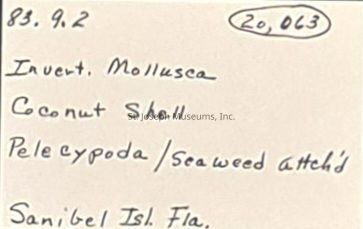 83.9.2 20,063
Invert. Mollusca
Coconut Shell
St. Joseph Museums, Inc.
Pelecypoda/Seaweed attch'd
Sanibel Isl. Fla.